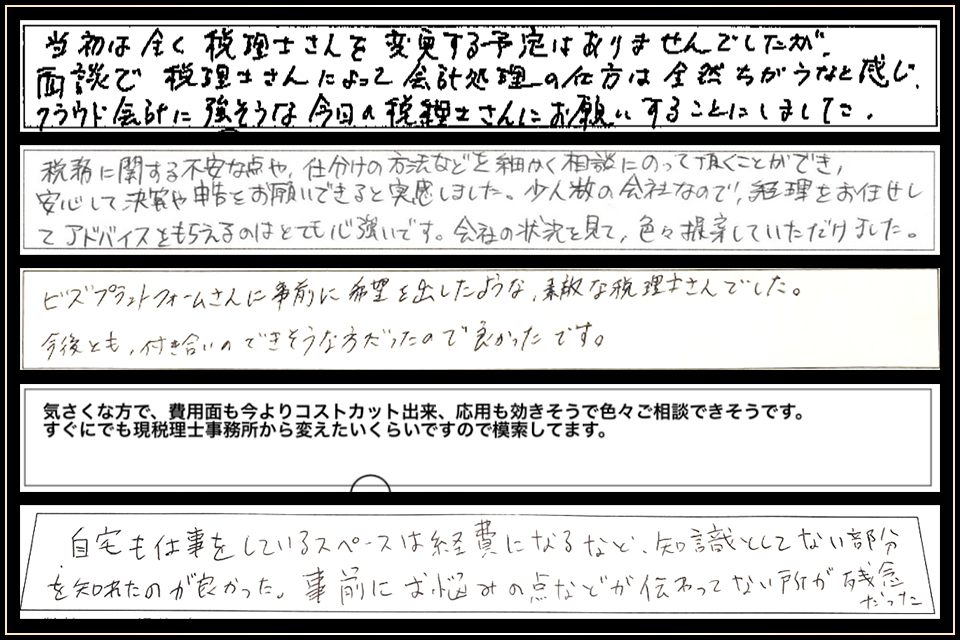 当初は全く税理士さんを変更する予定はありませんでしたが、
面談で税理士さんによって会計処理の仕方は全然ちがうなと感じ、
クラウド会計に強そうな今回の税理士さんにお願いすることにしました。
税務に関する不安な点や、仕分けの方法などを細かく相談にのって頂くことができ、
安心して決算や申告をお願いできると実感しました。少人数の会社なので、経理をお任せし
てアドバイスをもらえるのはとても心強いです。会社の状況を見て、色々提案していただけました。
ビズプラットフォームさんに事前に希望を出したような、素敵な税理士さんでした。
今後とも、付き合いのできそうな方だったので良かったです。
気さくな方で、費用面も今よりコストカット出来、応用も効きそうで色々ご相談できそうです。
すぐにでも現税理士事務所から変えたいくらいですので模索してます。
自宅も仕事をしているスペースは経費になるなど、知識としてない部分
を知れたのが良かった。事前にお悩みの点などが伝わってない所が残念
だった